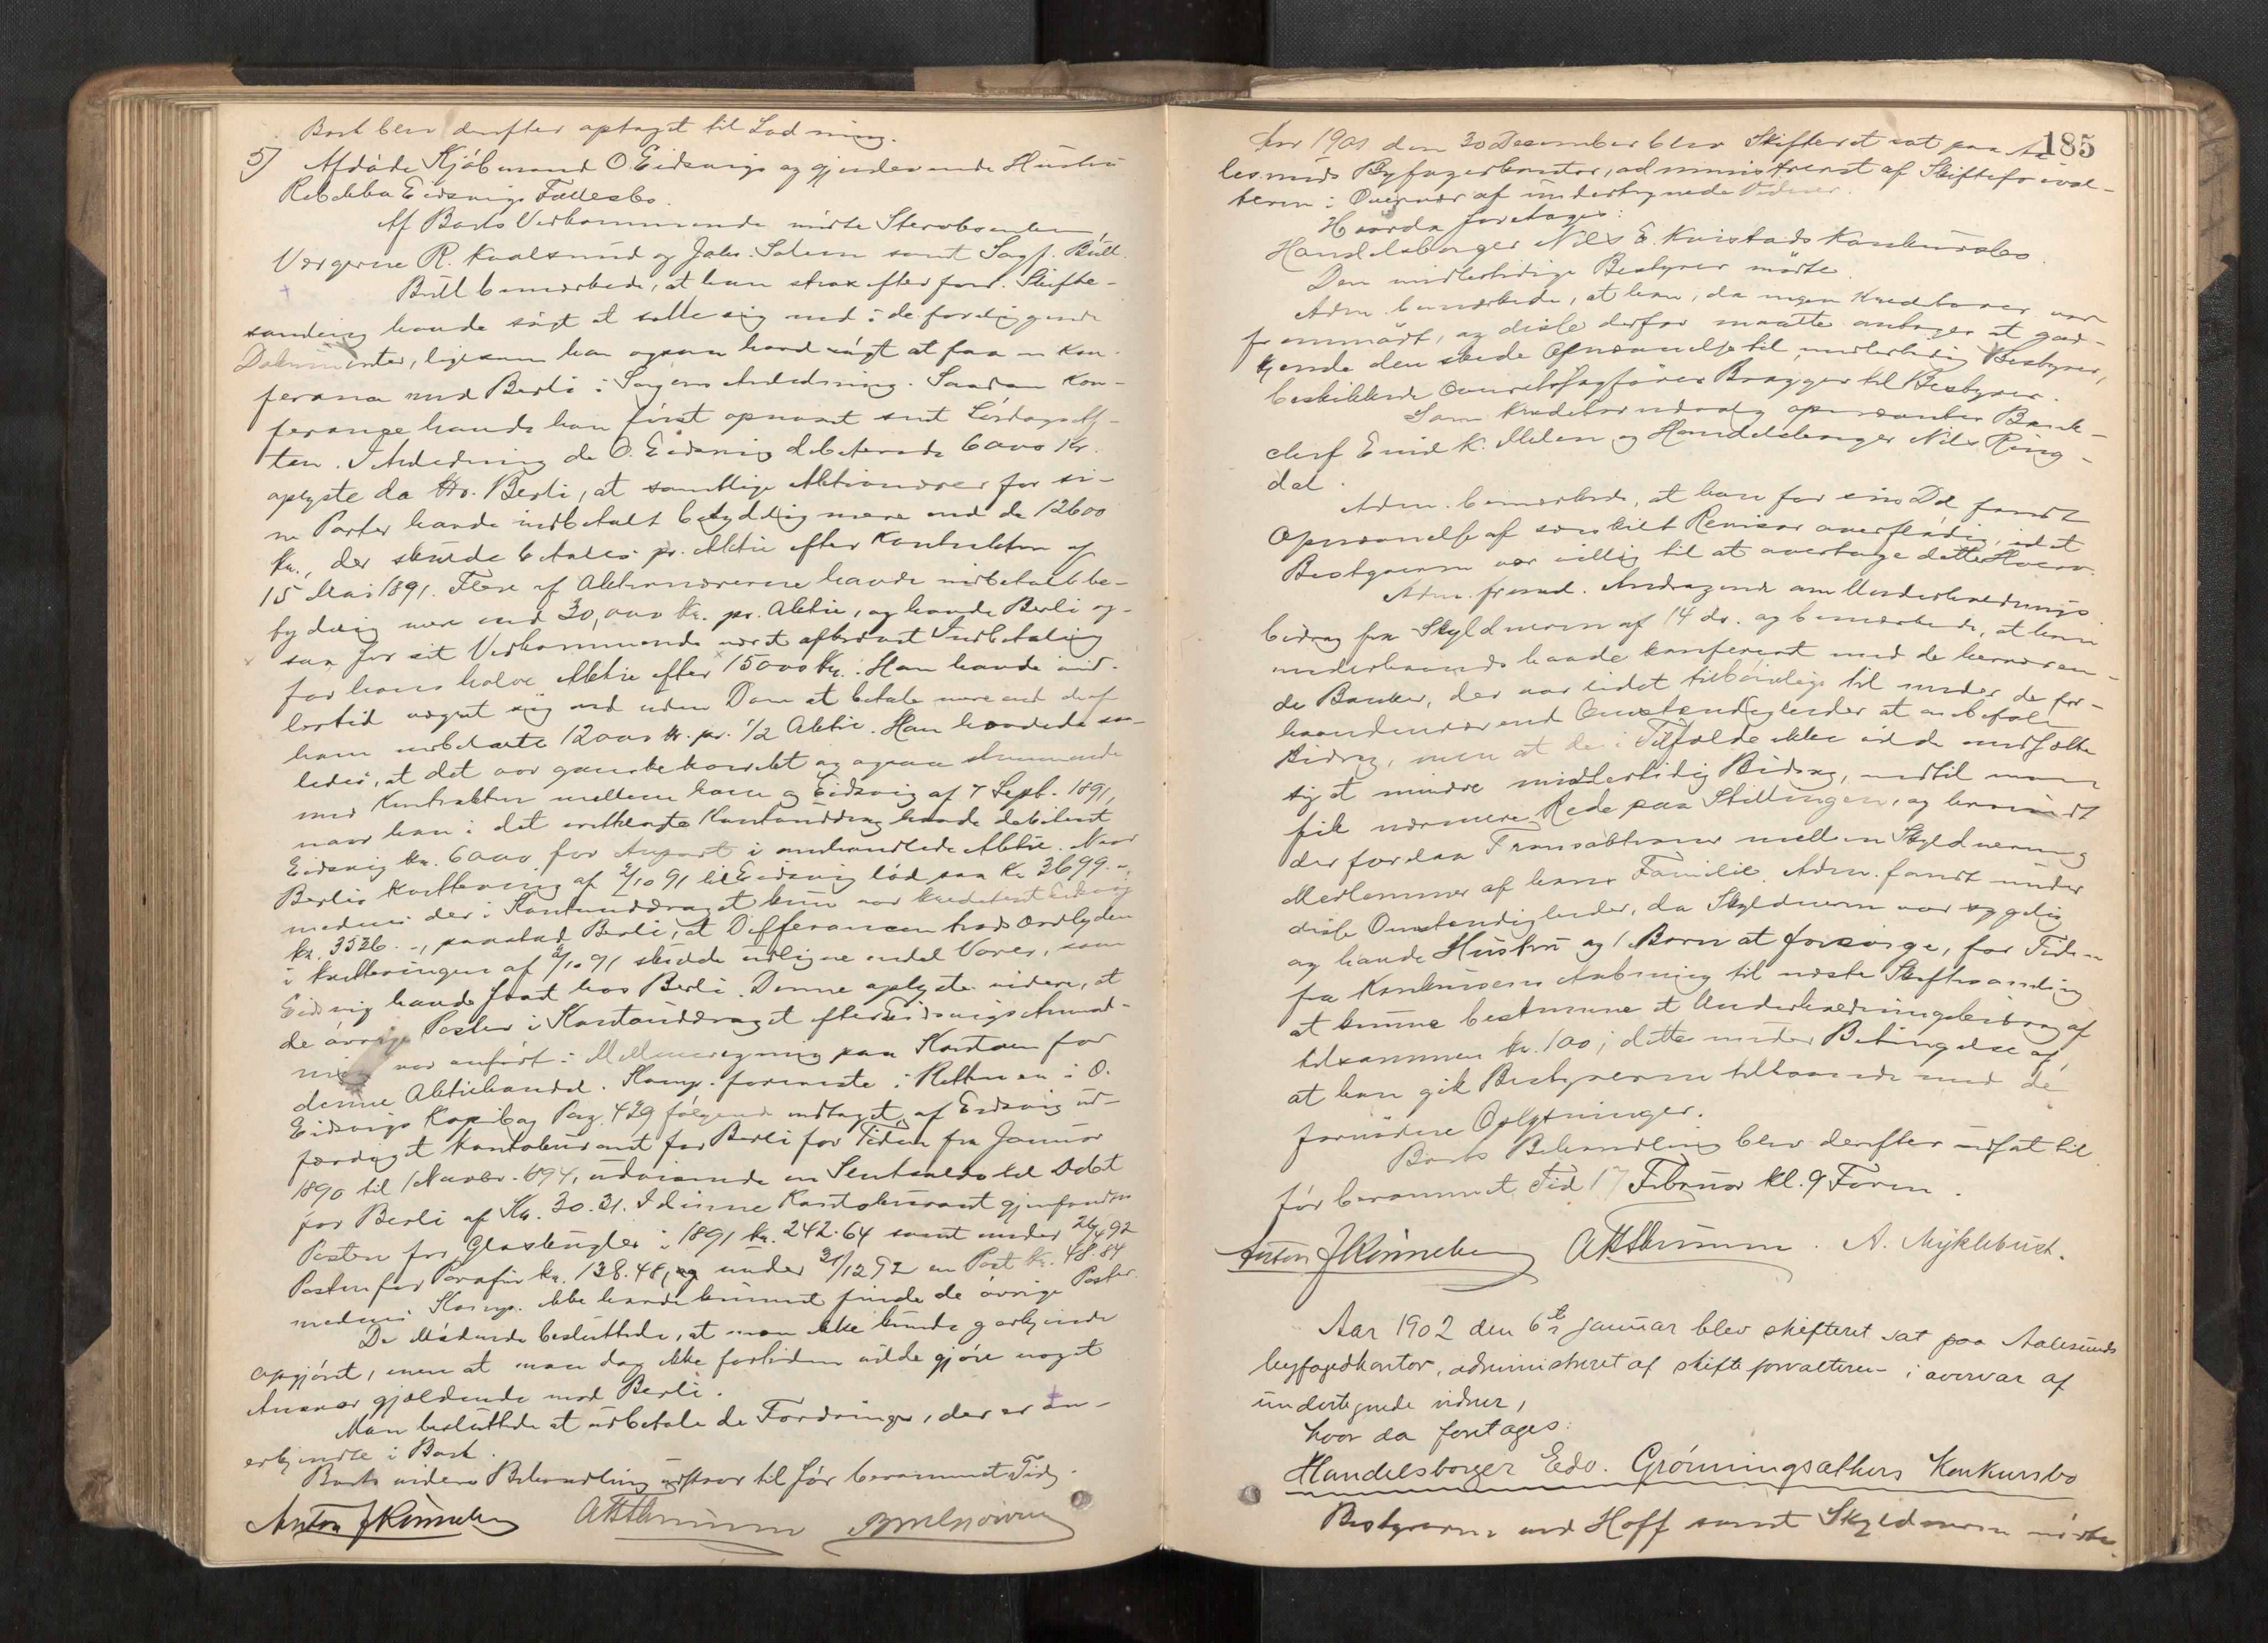 Boet blev derefter optaget til Ladning.
5) Afdøde Kjøbmand O. Eidsvigs og gjenlevende Hustru
Rebekka Eidsvigs Fællesbo.
Af Boets Vedkommende mødte Stervboenken,
Værgerne R. Kaalsund og Johs. Solem samt Sagf. Bull.
Bull bemærkede, at han strax efter forr. Skifte-
samling havde søgt at sætte sig ind i de foreliggende
Dokumenter, ligesom han ogsaa havde søgt at faa en Kon-
ferance med Berli i Sagens Anledning. Saadan Kon-
ferance havde han først opnaaet sent Lørdags Af-
ten. I Anledning de O. Eidsvig debiterede 6000 Kr.
oplyste da Hr. Berli, at samtlige Aktionærer for si-
ne Parter havde indbetalt betydelig mere end de 12600
Kr., der skulde betales pr. Aktie efter Kontrakten af
15 Mai 1891. Flere af Aktionærerne havde indbetalt be-
tydelig mere end 30,000 Kr. pr. Aktie, og havde Berli og-
saa for sit Vedkommende været afkrævet Indbetaling
for hans halve Aktie efter 15000 Kr. Han havde imid-
lertid vægret sig ved uden Dom at betale mere end de af
ham indbetalte 12000 Kr. pr. 1/2 Aktie. Han hævdede saa-
ledes, at det var ganske korrekt og ogsaa stemmende
med Kontrakten mellem ham og Eidsvig af 7 Sept. 1891,
naar han i det omhandlede Kontouddrag havde debiteret
Eidsvig Kr. 6000 for Anpart i omhandlede Aktie. Naar
Berlis Kvittering af 2/10 91 til Eidsvig lød paa Kr. 3699.-,
medens der i Kontouddraget kun var krediteret Eidsvig
Kr. 3526.-, paastod Berli, at Differancen trods Ordlyden
i Kvitteringen af 2/10 91 skulde udligne endel Varer, som
Eidsvig havde faaet hos Berli. Denne oplyste videre, at
de øvrige Poster i Kontouddraget efter Eidsvigs Anmod-
ning var anført i Mellemregning paa Kontoen for
denne Aktiehandel. Komp. foreviste i Retten en i O.
Eidsvigs Kopibog Pag. 429 følgende indtaget af Eidsvig ud-
færdiget Kontokurant for Berli for Tiden fra Januar
1890 til 1 Novbr. 1894, udvisende en Slutsaldo til Debet
for Berli af Kr. 30.31. I denne Kontokurant gjenfandtes
Posten for Glaskugler i 1891 Kr. 242.64 samt under 26/4 92
Posten for Parafin Kr. 138.48, og under 31/12 92 en Post Kr. 48.84
medens Komp. ikke havde kunnet finde de øvrige Poster.
De Mødende besluttede, at man ikke kunde godkjende
Opgjøret, men at man dog ikke forhiden vilde gjøre noget
Ansvar gjældende mod Berli.
Man besluttede at udbetale de Fordringer, der er an-
erkjendte i Boet.
Boets videre Behandling udstaar til før berammet Tid.
Anton J Rønneberg
Aar 1901 den 30 Desember blev Skifteret sat paa Aa- 185
lesunds Byfogedkontor, administreret af Skifteforval-
teren i Overvær af undertegnede Vidner.
Hvorda foretages:
Handelsborger Nils E. Kvistads Konkursbo.
Den midlertidige Bestyrer mødte.
Adm. bemærkede, at han, da ingen Kreditorer var
fremmødt, og disse derfor maatte antages at god-
kjende den skede Opnævnelse til midlertidig Bestyrer,
beskikkede Overretssagfører Brøgger til Bestyrer.
Som Kreditorudvalg opnævntes Bank-
chef Emil K. Molen og Handelsborger Nils Ring-
dal.
Adm. bemærkede, at han for sin Del fandt
Opnævnelse af særskilt Revisor overflødig, idet
Bestyreren var villig til at overtage dette Hverv.
Adm. freml. Andragende om Underholdnings-
bidrag fra Skyldneren af 14 ds. og bemærkede, at han
underhaands havde konfereret med de herværen-
de Banker, der var lidet tilbøielige til under de for-
haandenværende Omstændigheder at anbefale
Bidrag, men at de i Tilfælde ikke vilde modsætte
sig et mindre midlertidig Bidrag, indtil man
fik nærmere Rede paa Stillingen, og hvorvidt
der forelaa Transaktioner mellem Skyldneren og
Medlemmer af hans Familie. Adm. fandt under
disse Omstændigheder, da Skyldneren var sygelig
og havde Hustru og 1 Barn at forsørge, for Tiden
fra Konkursens Aabning til næste Skiftesamling
at kunne bestemme et Underholdningsbidrag af
tilsammen Kr. 100; dette under Betingelse af,
at han gik Bestyreren tilhaande med de
fornødne Oplysninger.
Boets Behandling blev derefter udsat til
før berammet Tid 17 Februar Kl. 9 Form.
Anton J Rønneberg A. Myklebust.
Aar 1902 den 6te januar blev skifteret sat paa Aalesunds
byfogedkontor, administreret af skifteforvalteren i overvær af
undertegnede vidner,
hvor da foretages:
Handelsborger Edv. Grønningsæthers Konkursbo
Bestyreren ved Hoff samt Skyldneren mødte.